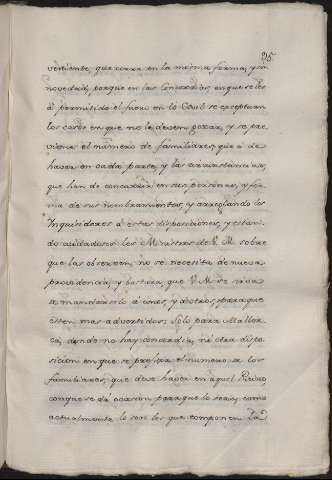 25
viniente, que corra en la misma forma, y sin
novedad, porque en las Concordias en que se les
à permitido el fuero en lo Civil se exceptuan
los casos en que no le deven gozar, y se pre-
viene el numero de familiares, que à de
haver en cada parte, y las circunstancias,
que han de concurrir en sus personas, y for-
ma de sus nombramientos, y arreglando los
Inquisidores à estas disposiciones, y estan-
do cuidadosos los Ministros de V. M. sobre
que las observen, no se necesita de nueva
providencia, y bastara, que V. M. se sirva
se mandarselo à unos, y a otros, para que
esten mas advertidos; Solo para Mallor-
ca, donde no hay concordia, ni otra dispo-
sicion en que se prefixa el numero a los
familiares, que deve haver en aquel Reino
con que se da ocasion para que lo sean, como
actualmente lo son los que componen la